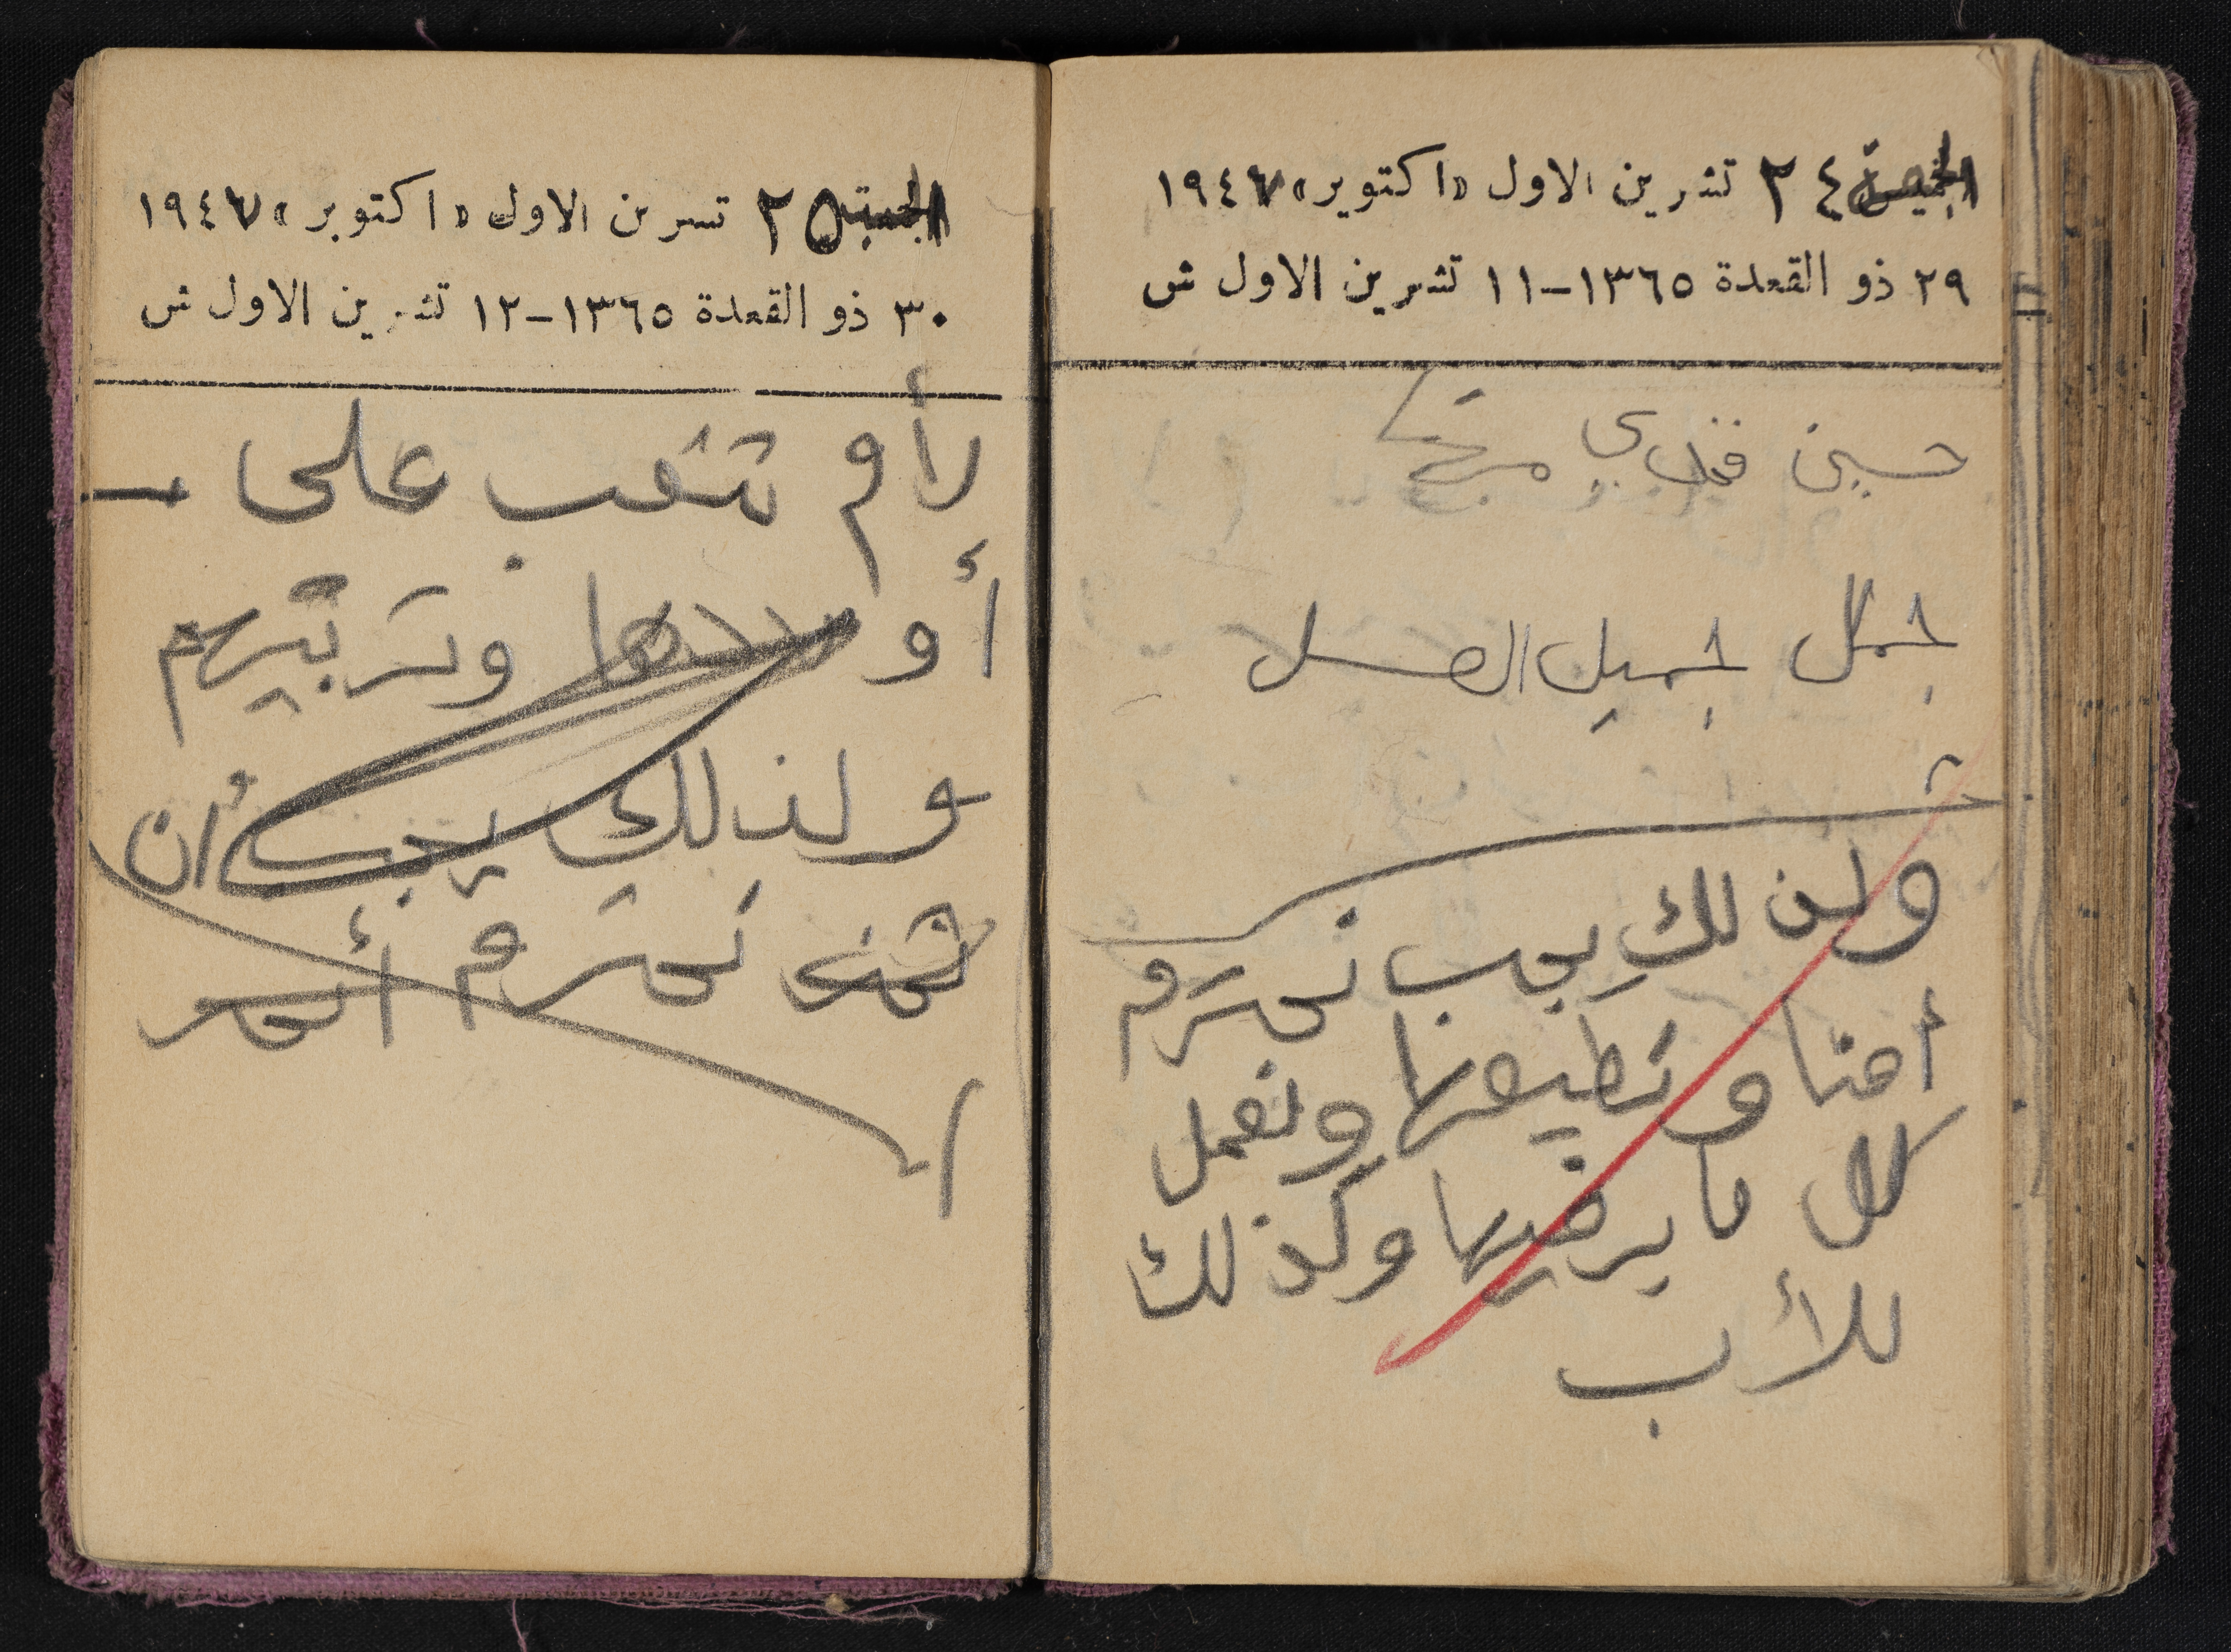 ٢٤ تشرين الاول «اكتوبر» ١٩٤٧
٢٩ ذو القعدة ١٣٦٥-١١ تشرين الاول ش
حسين
جمال جميل العسل
ولذلك يجب نحترم
أمنا و نطيعها ونعمل
كل ما يرضيها وكذلك
للأب
٢٥ تشرين الاول «اكتوبر» ١٩٤٧
٣٠ ذو القعدة ١٣٦٥-١٢ تشرين الاول ش
لأم تتعب على
أو وتربيهم
ولذلك يجب أن
نحترم